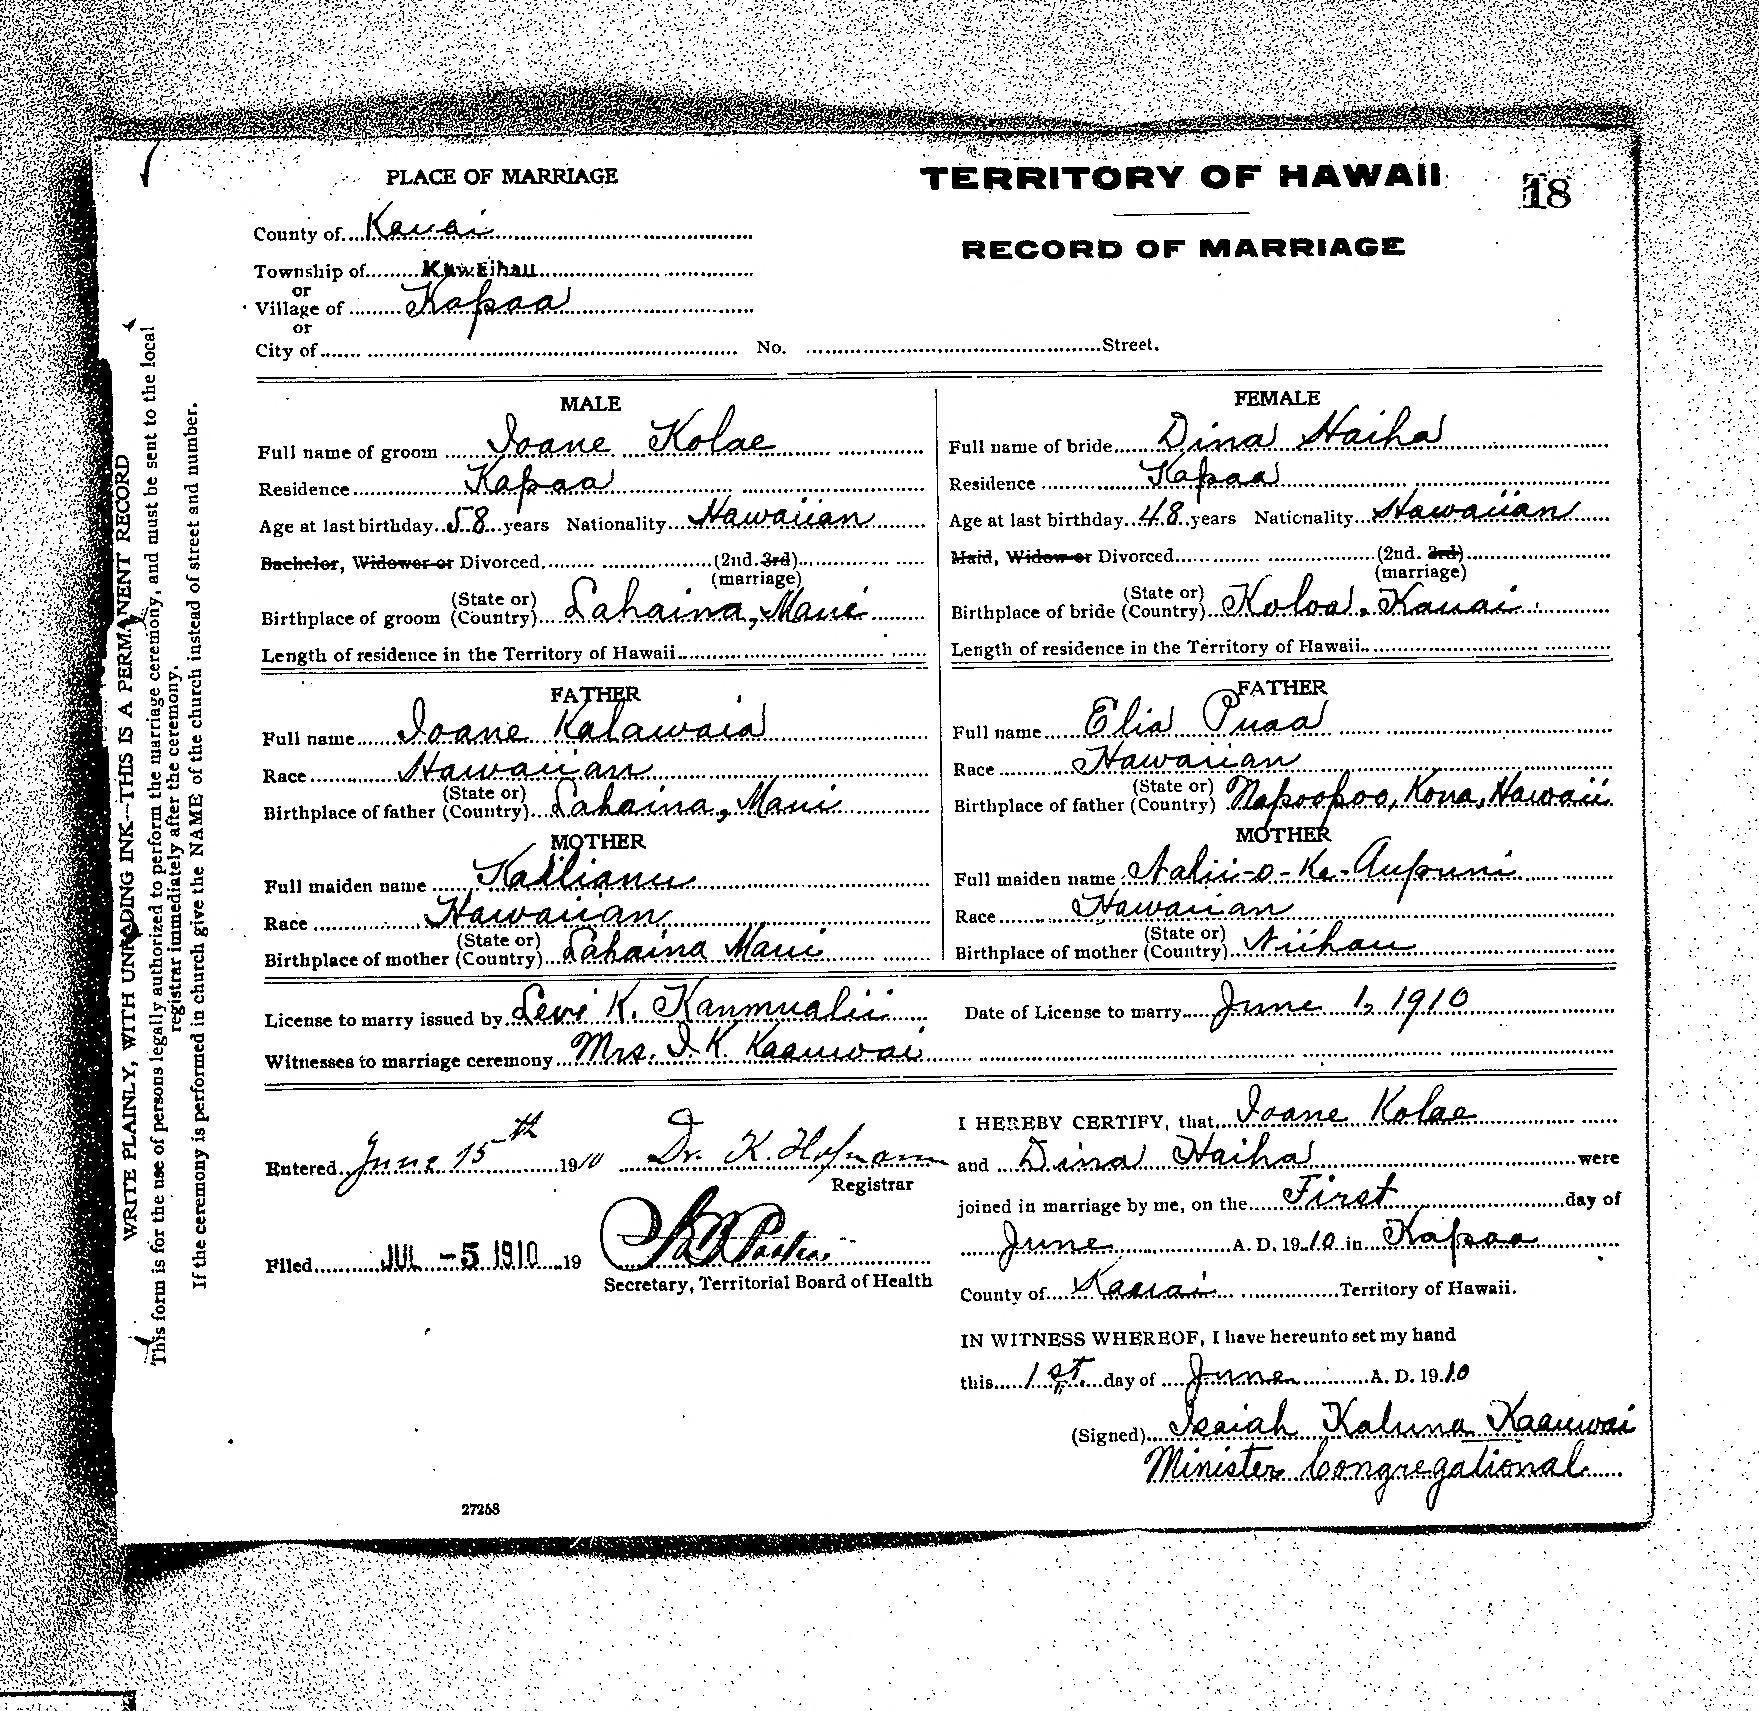 PLACE OF MARRIAGE
TERRITORY OF HAWAII
18
County of Kauai
RECORD OF MARRIAGE
Township of Kawaihau
or
Village of Kapaa
or
City of No. Street.
MALE
Full name of groom Ioane Kolae
Residence Kapaa
Age at last birthday 58 years Nationality Hawaiian
Bachelor, Widower or Divorced (2nd. 3rd)
(marriage)
Birthplace of groom (State or Country) Lahaina, Maui
Length of residence in the Territory of Hawaii
FEMALE
Full name of bride Dina Haiha
Residence Kapaa
Age at last birthday 48 years Nationality Hawaiian
Maid, Widow or Divorced (2nd. 3rd)
(marriage)
Birthplace of bride (State or Country) Koloa, Kauai
Length of residence in the Territory of Hawaii
FATHER
Full name Ioane Kalawaia
Race Hawaiian
Birthplace of father (State or Country) Lahaina, Maui
MOTHER
Full maiden name Kailianu
Race Hawaiian
Birthplace of mother (State or Country) Lahaina Maui
FATHER
Full name Elia Puaa
Race Hawaiian
Birthplace of father (State or Country) Napoopoo, Kona, Hawaii
MOTHER
Full maiden name Nalii-o-Ke-Aupuni
Race Hawaiian
Birthplace of mother (State or Country) Niihau
License to marry issued by Levi K. Kaumualii Date of License to marry June 1, 1910
Witnesses to marriage ceremony Mrs. I. K. Kaauwai
Entered June 15th 1910 Dr. K. Hofmann
Registrar
Filed JUL -5 1910 19
Secretary, Territorial Board of Health
I HEREBY CERTIFY, that Ioane Kolae
and Dina Haiha were
joined in marriage by me, on the First day of
June A. D. 1910 in Kapaa
County of Kauai Territory of Hawaii.
IN WITNESS WHEREOF, I have hereunto set my hand
this 1st. day of June A. D. 1910
(Signed) Isaiah Kaluna Kaauwai
Minister Congregational
27258
WRITE PLAINLY, WITH UNFADING INK—THIS IS A PERMANENT RECORD
This form is for the use of persons legally authorized to perform the marriage ceremony, and must be sent to the local
registrar immediately after the ceremony.
If the ceremony is performed in church give the NAME of the church instead of street and number.